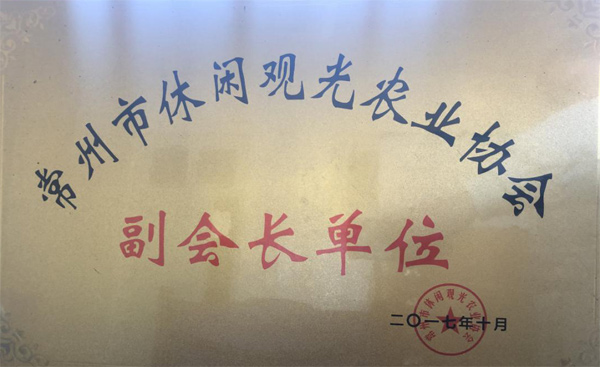 常州市休闲观光农业协会
副会长单位
常州市休闲观光农业协会
二〇一七年十月